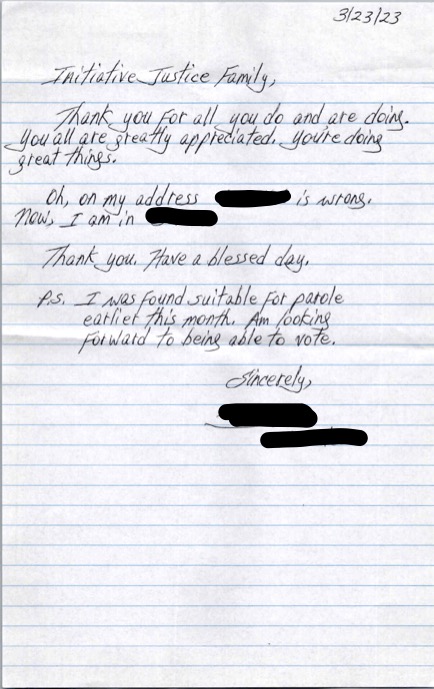 3/23/23
Initiative Justice Family,
Thank you for all you do and are doing.
You all are greatly appreciated. You're doing
great things.
Oh, on my address is wrong.
Now, I am in
Thank you. Have a blessed day.
P.S. I was found suitable for parole
earlier this month. Am looking
forward to being able to vote.
Sincerely,